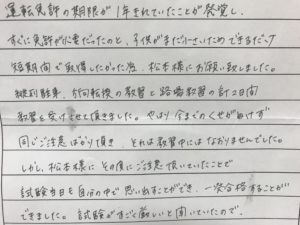 運転免許の期限が1年きれていたことが発覚し、
すぐに免許が必要だったのと、子供がまだ小さいためできるだけ
短期間で取得したかった為、松本様にお願い致しました。
縦列駐車、方向転換の教習と路端教習の計2日間
教習を受けさせて頂きました。やはり今までのくせがぬけず
同じご注意ばかり頂き、それは教習中にはなおりませんでした。
しかし、松本様にその度にご注意頂いていたことで
試験当日も自分の中で思い出すことができ、一発合格することが
できました。試験がすごく厳しいと聞いていたので、